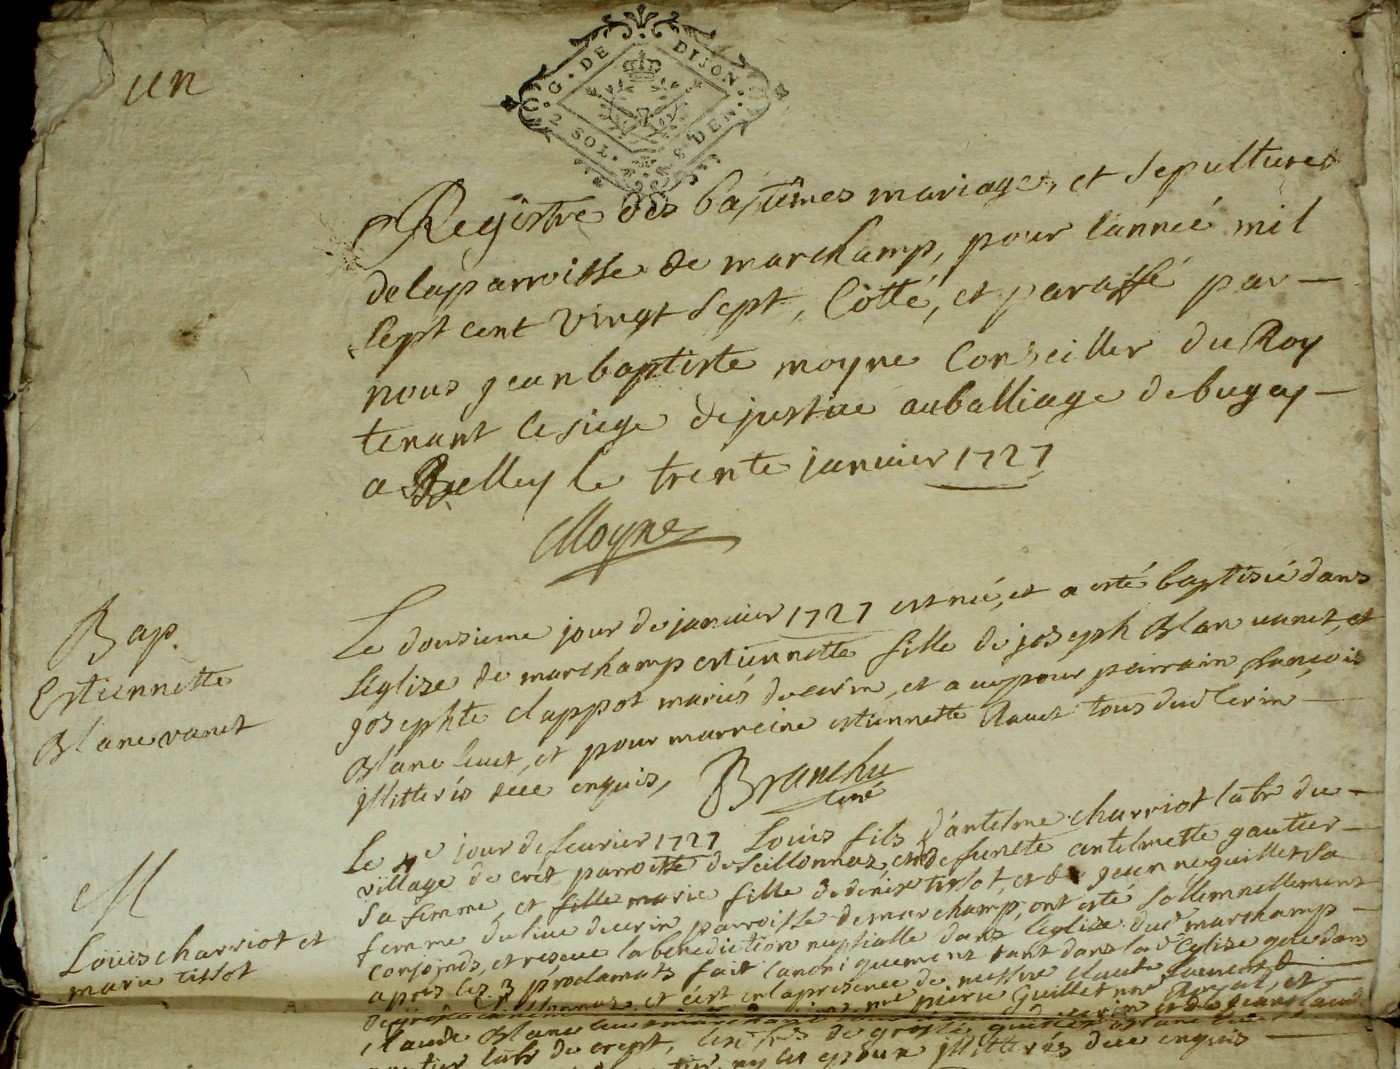 un
G. DE DIJON
2 SOL. 8 DEN.
Registre des baptêmes mariages, et sepultures
de la parroisse de marchamp, pour lannée mil
sept cent vingt sept, Cotté, et paraffé par
nous jean baptiste moyne Conseiller du Roy
tenant le siege de justice au balliage de bugey
a Belley le trente janvier 1727
Moyne
Bap.
Estiennette
Blanc vanet
Le dousieme jour de janvier 1727 est née, et a esté baptisée dans
l'eglize de marchamp estiennette fille de joseph Blanc vanet, et
josephte clappot mariés du cerin, et a eu pour parrain françois
Blanc luet, et pour marreine estiennette tous dud cerin
illitterés de ce enquis, Branchu
curé
M
Louis charriot et
marie tissot
Le 4e jour de fevrier 1727 Louis fils d'antelme charriot labr du
village de crept parroisse de seillonnaz, et de funette antelmette gautier
sa femme et fille marie fille de denis tissot, et de jeanne guillet sa
femme du lieu de cerin parroisse de marchamp, ont esté sollemnellement
conjoinds, et receu la benediction nuptialle dans l'eglize dud marchamp
apres les 3 proclamats fait canoniquement tant dans lad eglize que dans
et c'est en la presence de messire claude
claude Blanc pierre guillet
labr de crept, illitterés de ce enquis